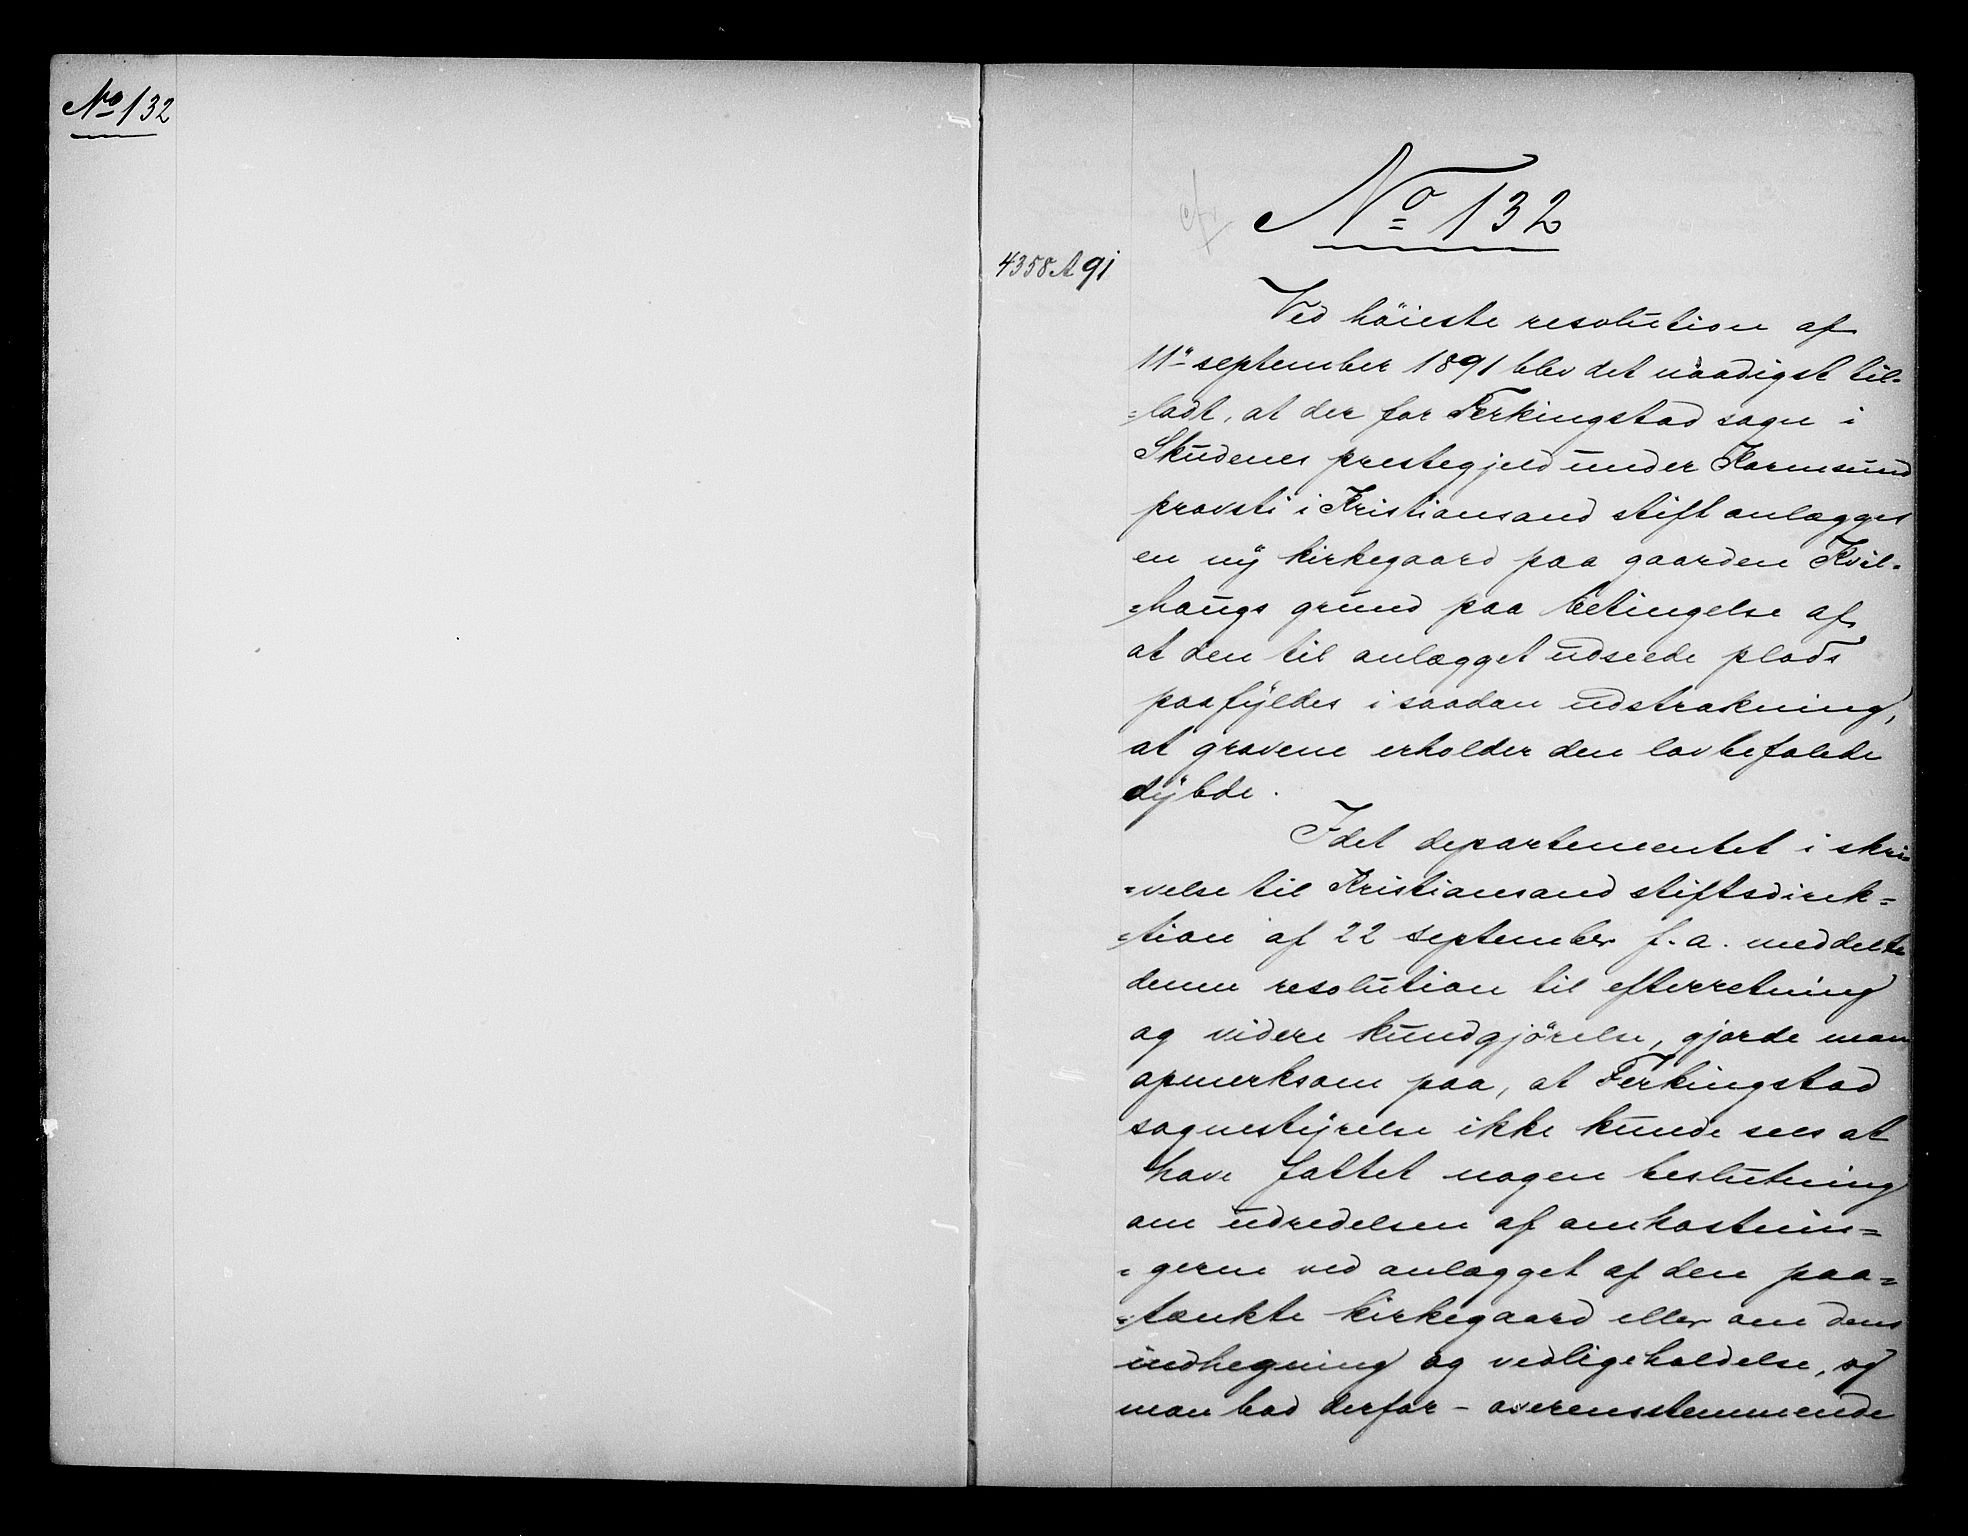 No 132
cfr
No 132
4358 A 91
Ved höieste resolution af
11te september 1891 blev det naadigst til-
=ladt, at der for Ferkingstad sogn i
Skudenes prestegjeld under Karmsund
provsti i Kristiansand stift anlægges
en ny kirkegaard paa gaarden Kvil-
=haugs grund paa betingelse af,
at den til anlægget udseede plads
paafyldes i saadan udstrækning,
at gravene erholder den lovbefalede
dybde.
Idet departementet i skri-
=velse til Kristiansand stiftsdirek=
=tion af 22 september f. a. meddelte
denne resolution til efterretning
og videre kundgjörelse, gjorde man
opmerksom paa, at Ferkingstad
sognestyrelse ikke kunde sees at
have fattet nogen beslutning
om udredelsen af omkostnin=
=gerne ved anlægget af den paa=
=tænkte kirkegaard eller om dens
indhegning og vedligeholdelse, og
man bad derfor – overensstemmende